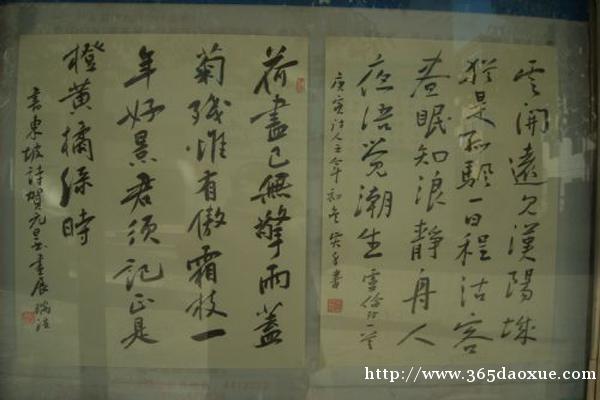 云開遠見漢陽城
猶是孤颿一日程沽客
晝眠知浪靜舟人
夜語覺潮生
庚寅
荷盡已無擎雨蓋
菊殘惟有傲霜枝一
年好景君須記正是
橙黃橘綠時
書東坡詩賀元旦書畫展
http://www.365daoxue.com